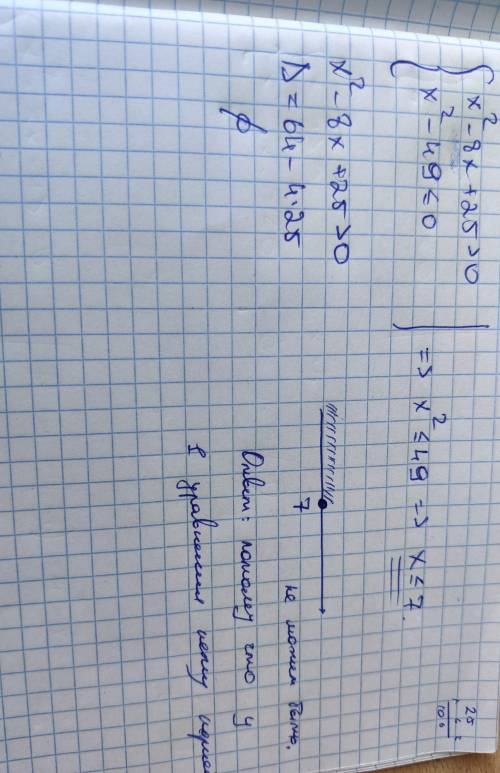 x² - 8x + 25 > 0
x² - 49 ≤ 0
=> x² ≤ 49 => x ≤ 7.
x² - 8x + 25 > 0
D = 64 - 4·25
∅
7
не может быть.
Ответ: потому что у
1 уравнения нету
25
100